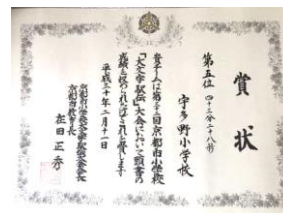 賞状
第五位 四十三分二十八秒
宇多野小学校
貴チームは第三十二回京都市小学校
「大文字駅伝」大会において頭書の
成績を収められましたので賞します
平成三十年二月十一日
京都市小学校大文字駅伝大会会長
京都市教育長
在田正秀